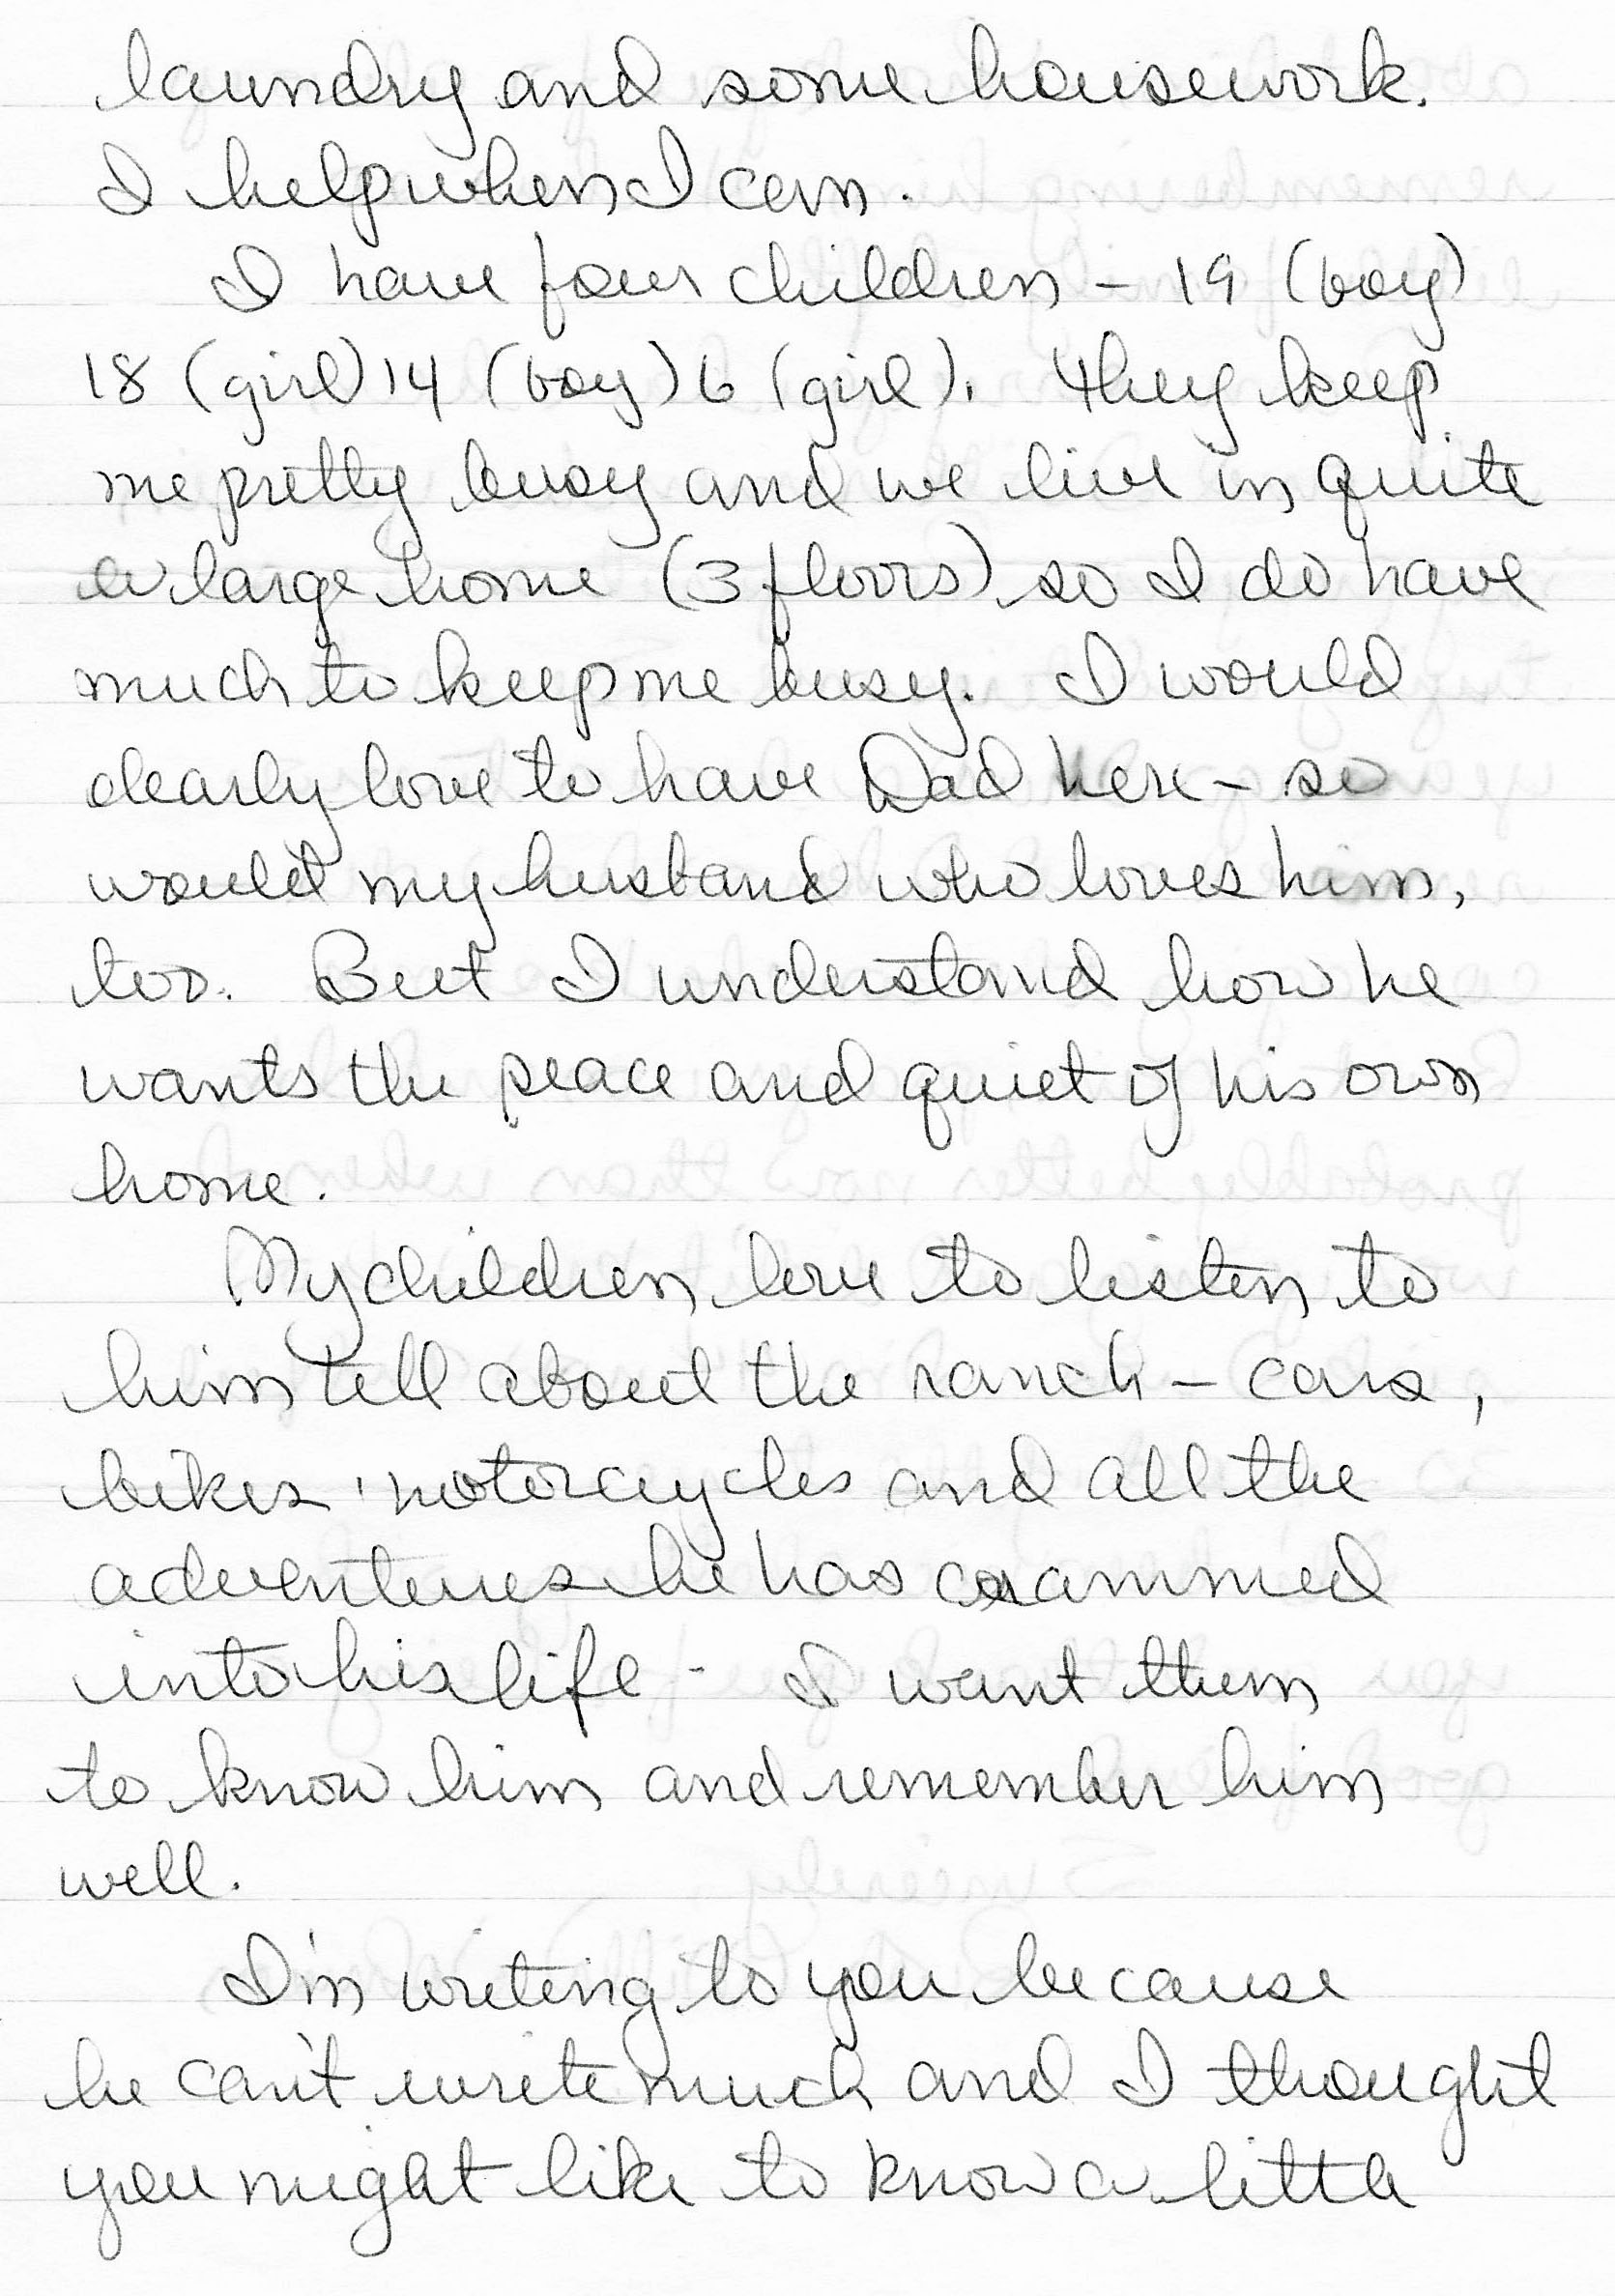 laundry and some housework.
I help when I can.
I have four children - 19 (boy)
18 (girl) 14 (boy) 6 (girl). They keep
me pretty busy and we live in quite
a large home (3 floors) so I do have
much to keep me busy. I would
dearly love to have Dad here - so
would my husband who loves him,
too. But I understand how he
wants the peace and quiet of his own
home.
My children love to listen to
him tell about the ranch - cars,
bikes, motorcycles and all the
adventures he has crammed
into his life - I want them
to know him and remember him
well.
I'm writing to you because
he can't write much and I thought
you might like to know a little